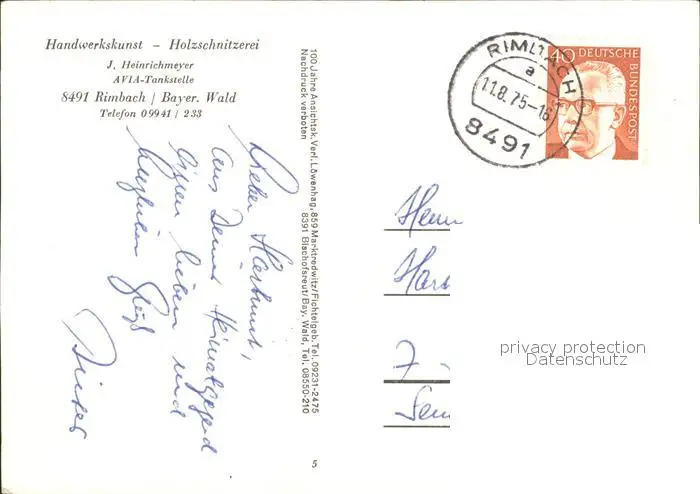 Handwerkskunst – Holzschnitzerei
J. Heinrichmeyer
AVIA-Tankstelle
8491 Rimbach / Bayer. Wald
Telefon 09941 / 233
100 Jahre Ansichtsk. Verl. Löwenhag, 859 Marktredwitz/Fichtelgeb. Tel. 09231-2475
Nachdruck verboten 8391 Bischofsreut/Bay. Wald, Tel. 08550-210
RIMBACH
a
11.8.75-16
8491
40 DEUTSCHE
BUNDESPOST
Lieber Hartmut,
aus Deiner Heimatgegend
einen lieben und
herzlichen Gruß
Dieter
Herrn
Hart
7
privacy protection
Datenschutz
5